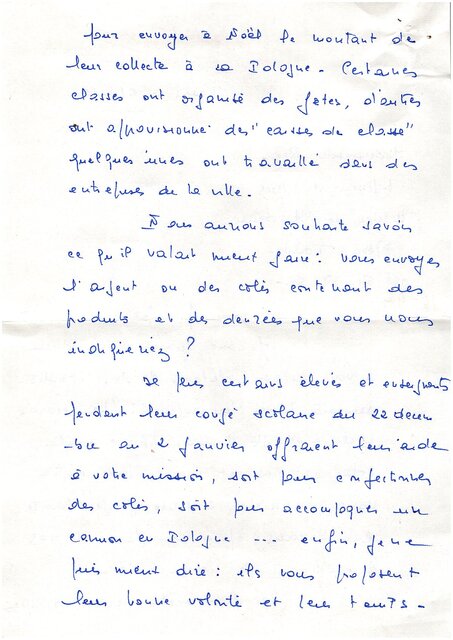 pour envoyer à Noël le montant de
leur collecte à la Pologne. Certaines
classes ont organisé des fêtes, d'autres
ont approvisionné des "caisses de classe"
quelques unes ont travaillé dans des
entreprises de la ville.
Nous aurions souhaité savoir
ce qu'il valait mieux faire : vous envoyer
l'argent ou des colis contenant des
produits et des denrées que vous nous
indiqueriez ?
De plus certains élèves et enseignants
pendant leur congé scolaire du 22 décem
-bre au 2 janvier offraient leur aide
à votre mission, soit pour confectionner
des colis, soit pour accompagner un
camion en Pologne ... enfin, je ne
puis mieux dire : ils vous proposent
leur bonne volonté et leur temps.